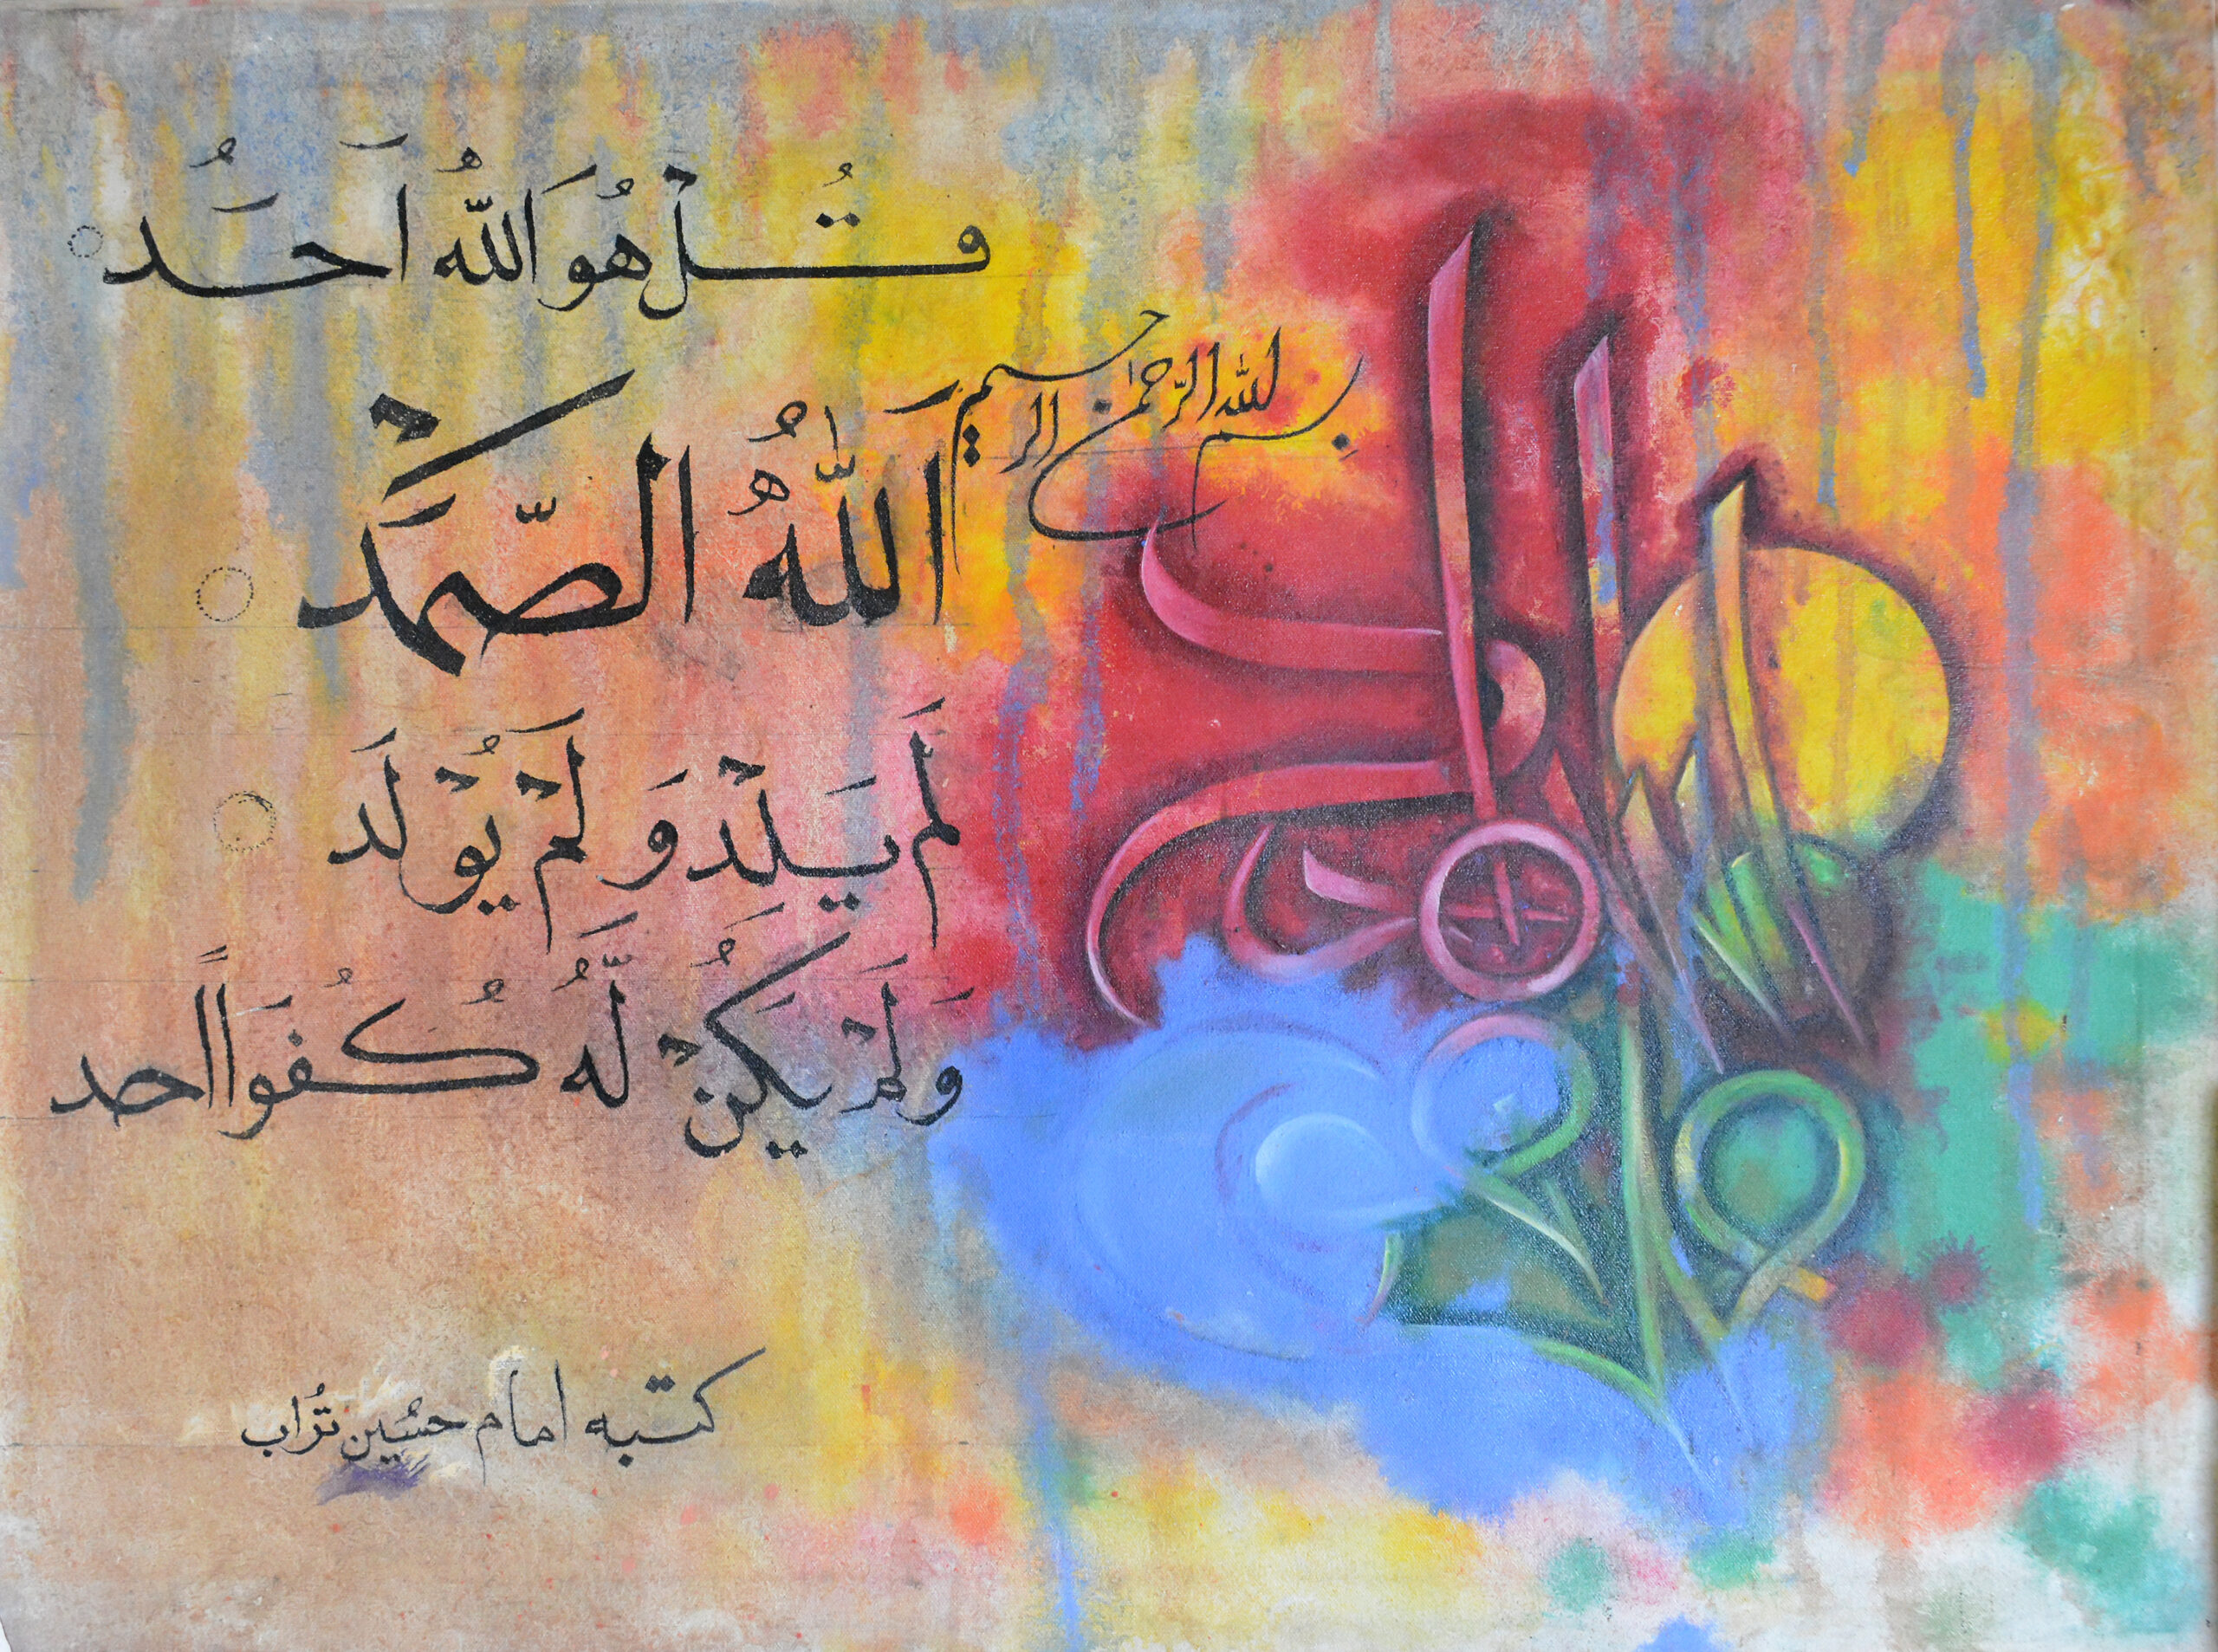 بِسم الله الرّحمٰن الرحیم
قُلْ هُوَ اللّٰهُ اَحَدُ
اَللّٰهُ الصَّمَدْ
لَمْ يَلِدْ وَ لَمْ يُوْلَد
وَلَمْ يَكُنْ لَّهُ كُفُوَاً احد
كتبه امام حسین تُراب